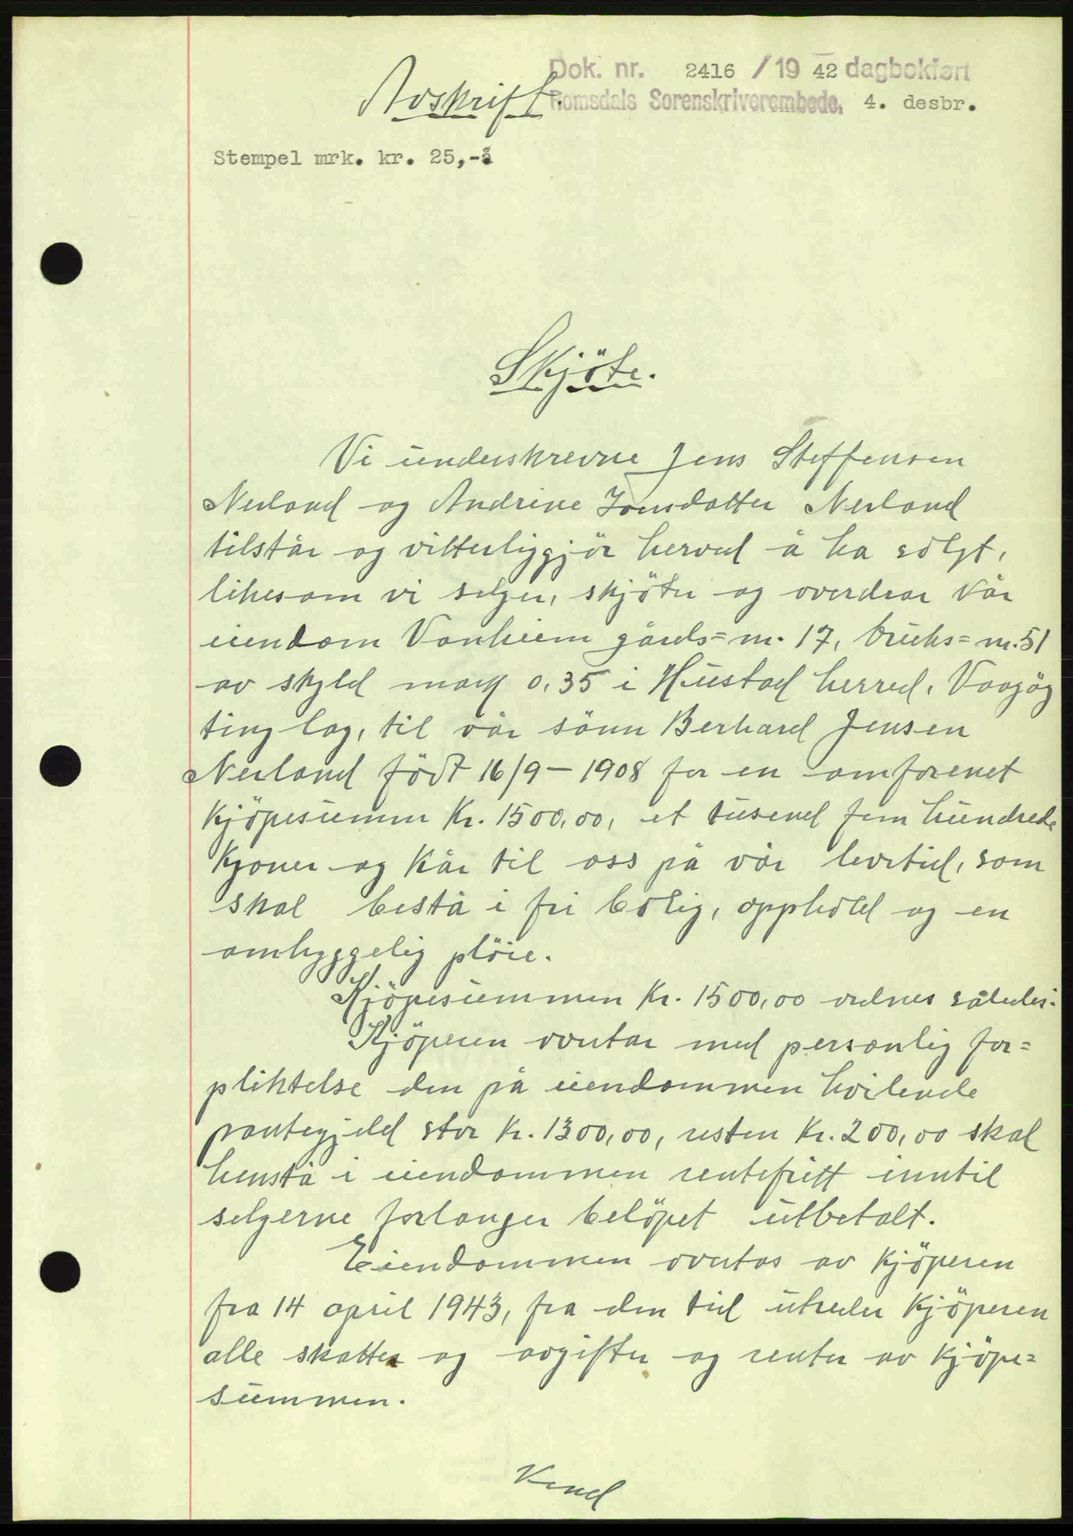 Avskrift.
Dok. nr. 2416 / 19 42 dagbokført
Romsdals Sorenskriverembede. 4. desbr.
Stempel mrk. kr. 25,-
Skjöte.
Vi underskrevne Jens Steffensen
Nerland og Andrine Jonsdatter Nerland
tilstår og vitterliggjör herved å ha solgt,
likesom vi selger, skjöter og overdrar vår
eiendom Vonheim gårds=nr. 17, bruks=nr. 51
av skyld mark 0,35 i Hustad herred, Vaagöy
tinglag, til vår sönn Berhard Jensen
Nerland födt 16/9 - 1908 for en omforenet
kjöpesumm kr. 1500,00, et tusend fem hundrede
kroner og kår til oss på vår levetid, som
skal bestå i fri bolig, opphold og en
omhyggelig pleie.
Kjöpesummen kr. 1500,00 ordnes således:
Kjöperen overtar med personlig for=
pliktelse den på eiendommen hvilende
pantegjeld stor kr. 1300,00, resten kr. 200,00 skal
henstå i eiendommen rentefritt inntil
selgerne forlanger belöpet utbetalt.
Eiendommen overtas av kjöperen
fra 14 april 1943, fra den tid utreder kjöperen
alle skatter og avgifter og renter av kjöpe=
summen.
Vend